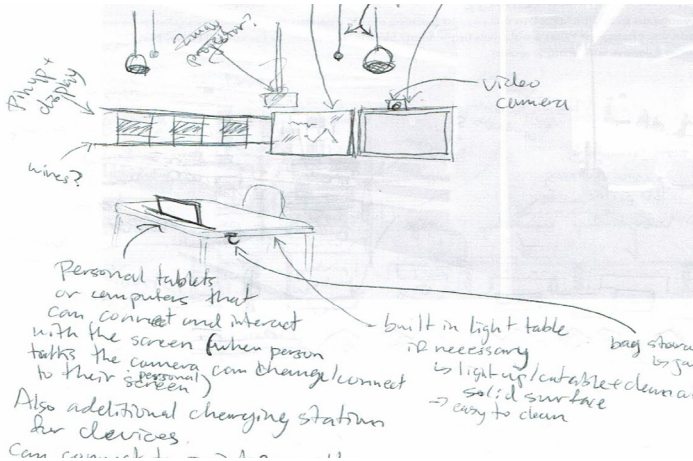 2 way
projector?
video
camera
Pinup +
display
wires?
Personal tablets
or computers that
can connect and interact
with the screen (when person
talks the camera can change/connect
to their personal
screen)
Also additional charging station
for devices.
built in light table
if necessary
↳ light up/cutable + clean
solid surface
→ easy to clean
bag
↳
Can connect to